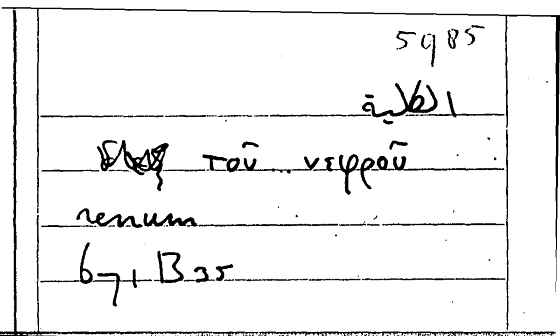 5985
الكلية
τοῦ νεφροῦ
renum
671 B 35